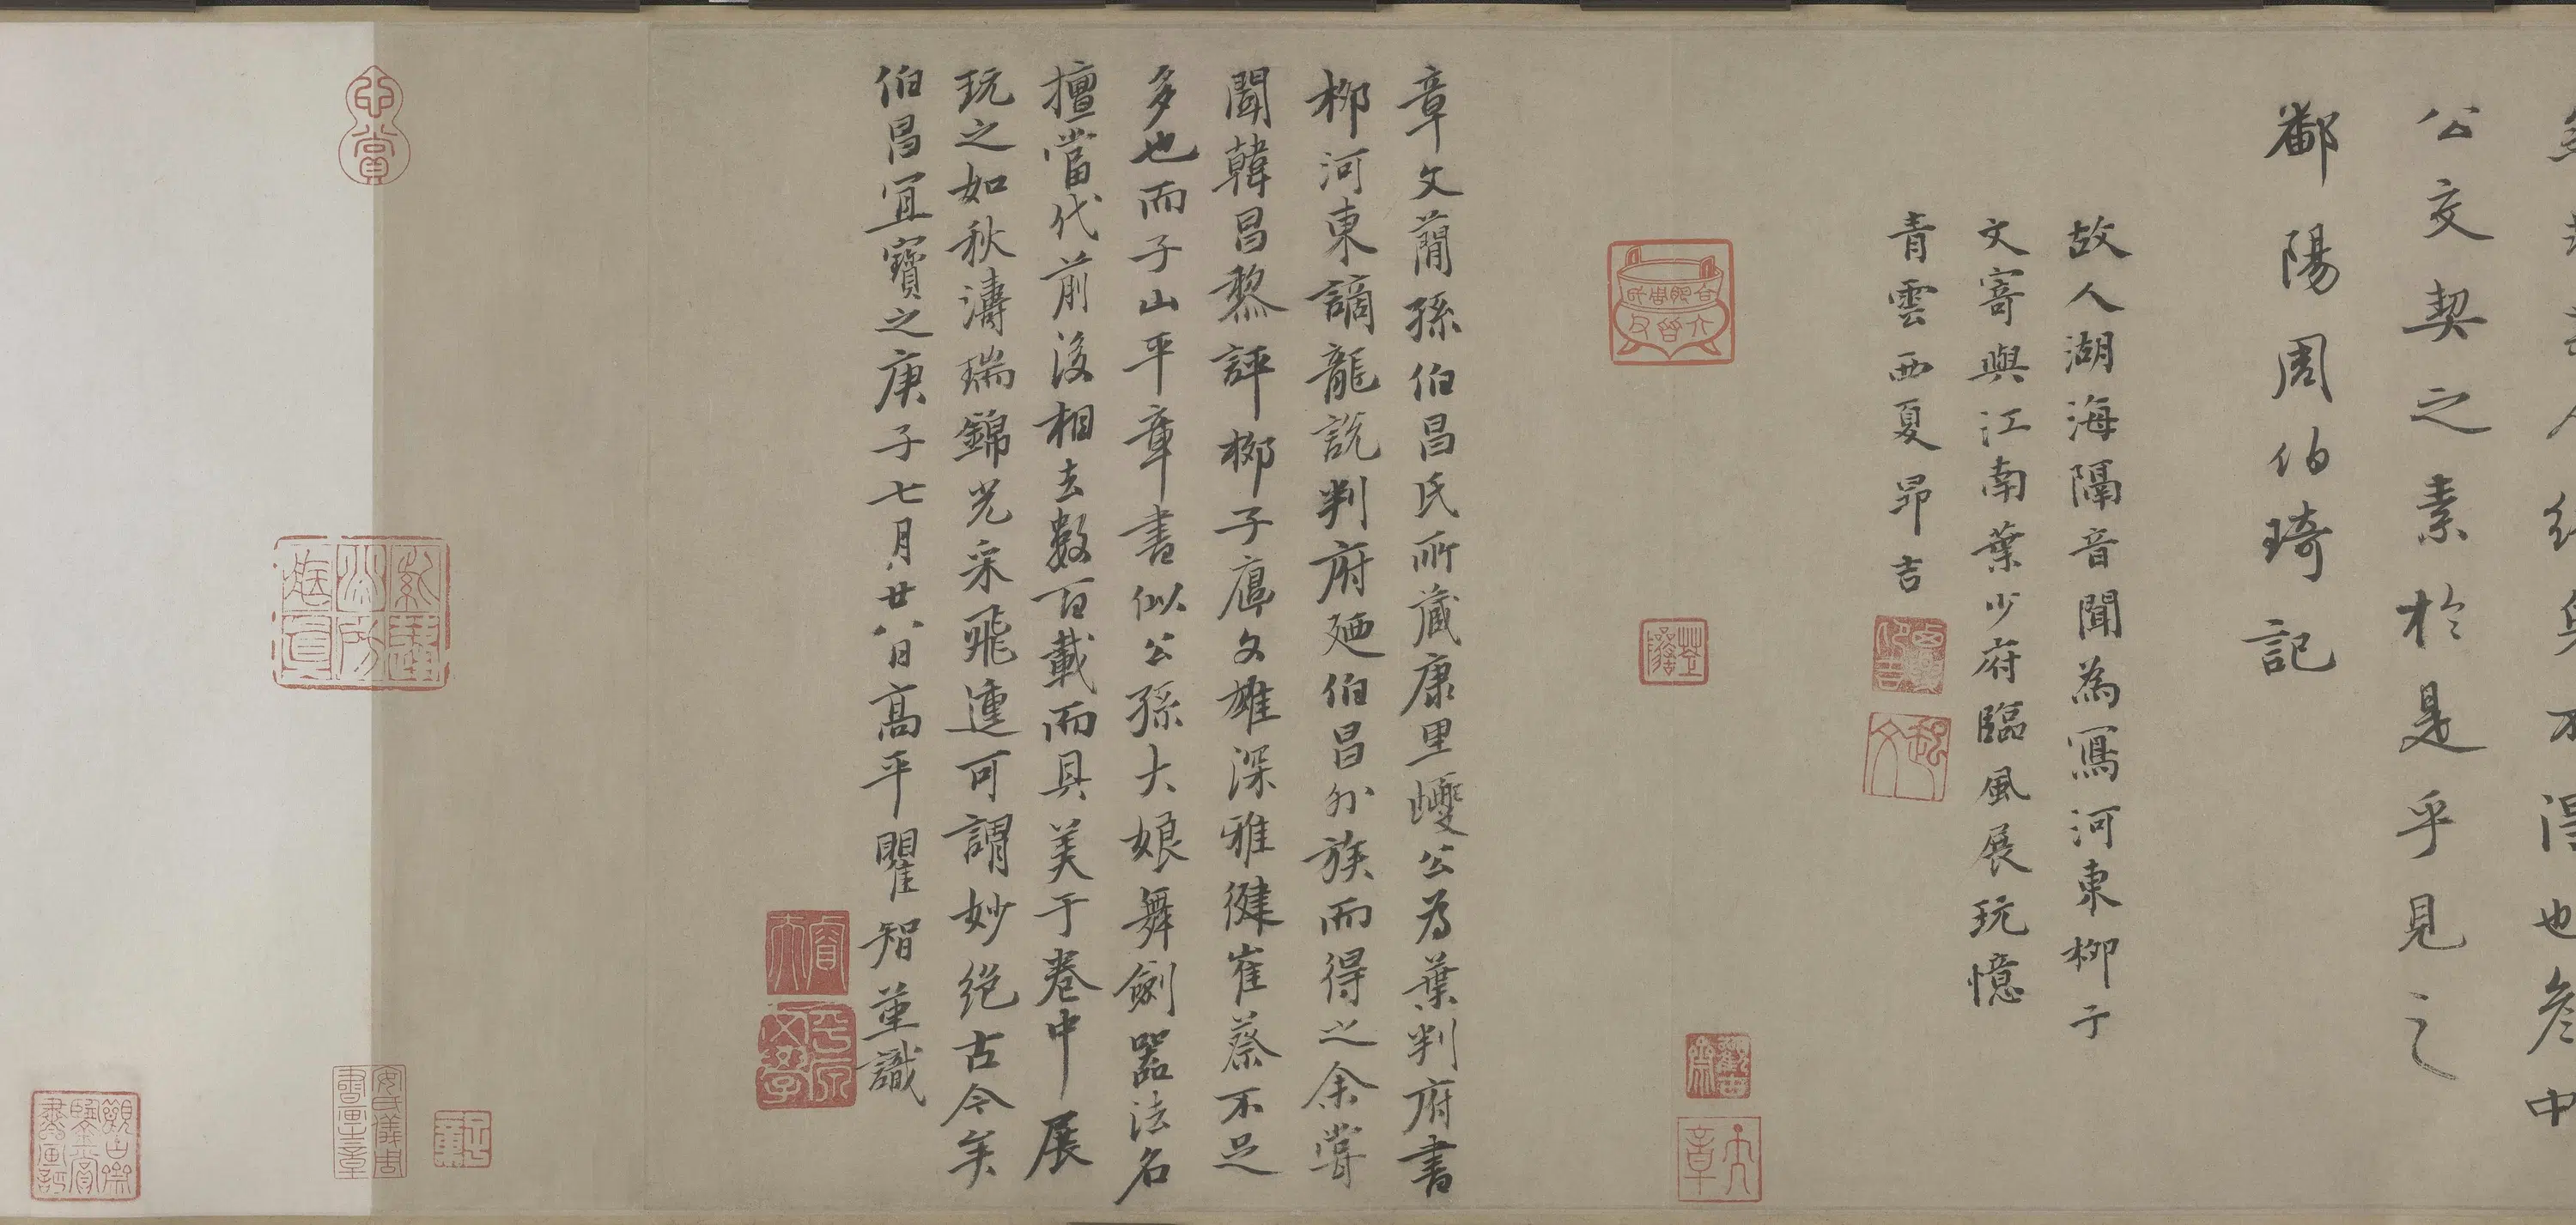 公交契之素於是乎見之
鄱陽周伯琦記
故人湖海隔音聞為寫河東柳子
文寄與江南葉少府臨風展玩憶
青雲西夏昂吉
章文簡孫伯昌氏所藏康里巎公為葉判府書
柳河東謫龍說判府廼伯昌外族而得之余嘗
聞韓昌黎評柳子厚文雄深雅健崔蔡不足
多也而子山平章書似公孫大娘舞劍器法名
擅當代前後相去數百載而具美于卷中展
玩之如秋濤瑞錦光采飛運可謂妙絕古今矣
伯昌宜寶之庚子七月廿八日高平瞿智堇識
心賞
安氏儀周書畫之章